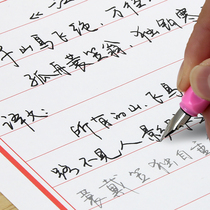 千山鸟飞绝，万径
孤舟蓑笠翁，独钓寒
译文： 所有的山，飞鸟
路不见人
蓑戴笠独自垂